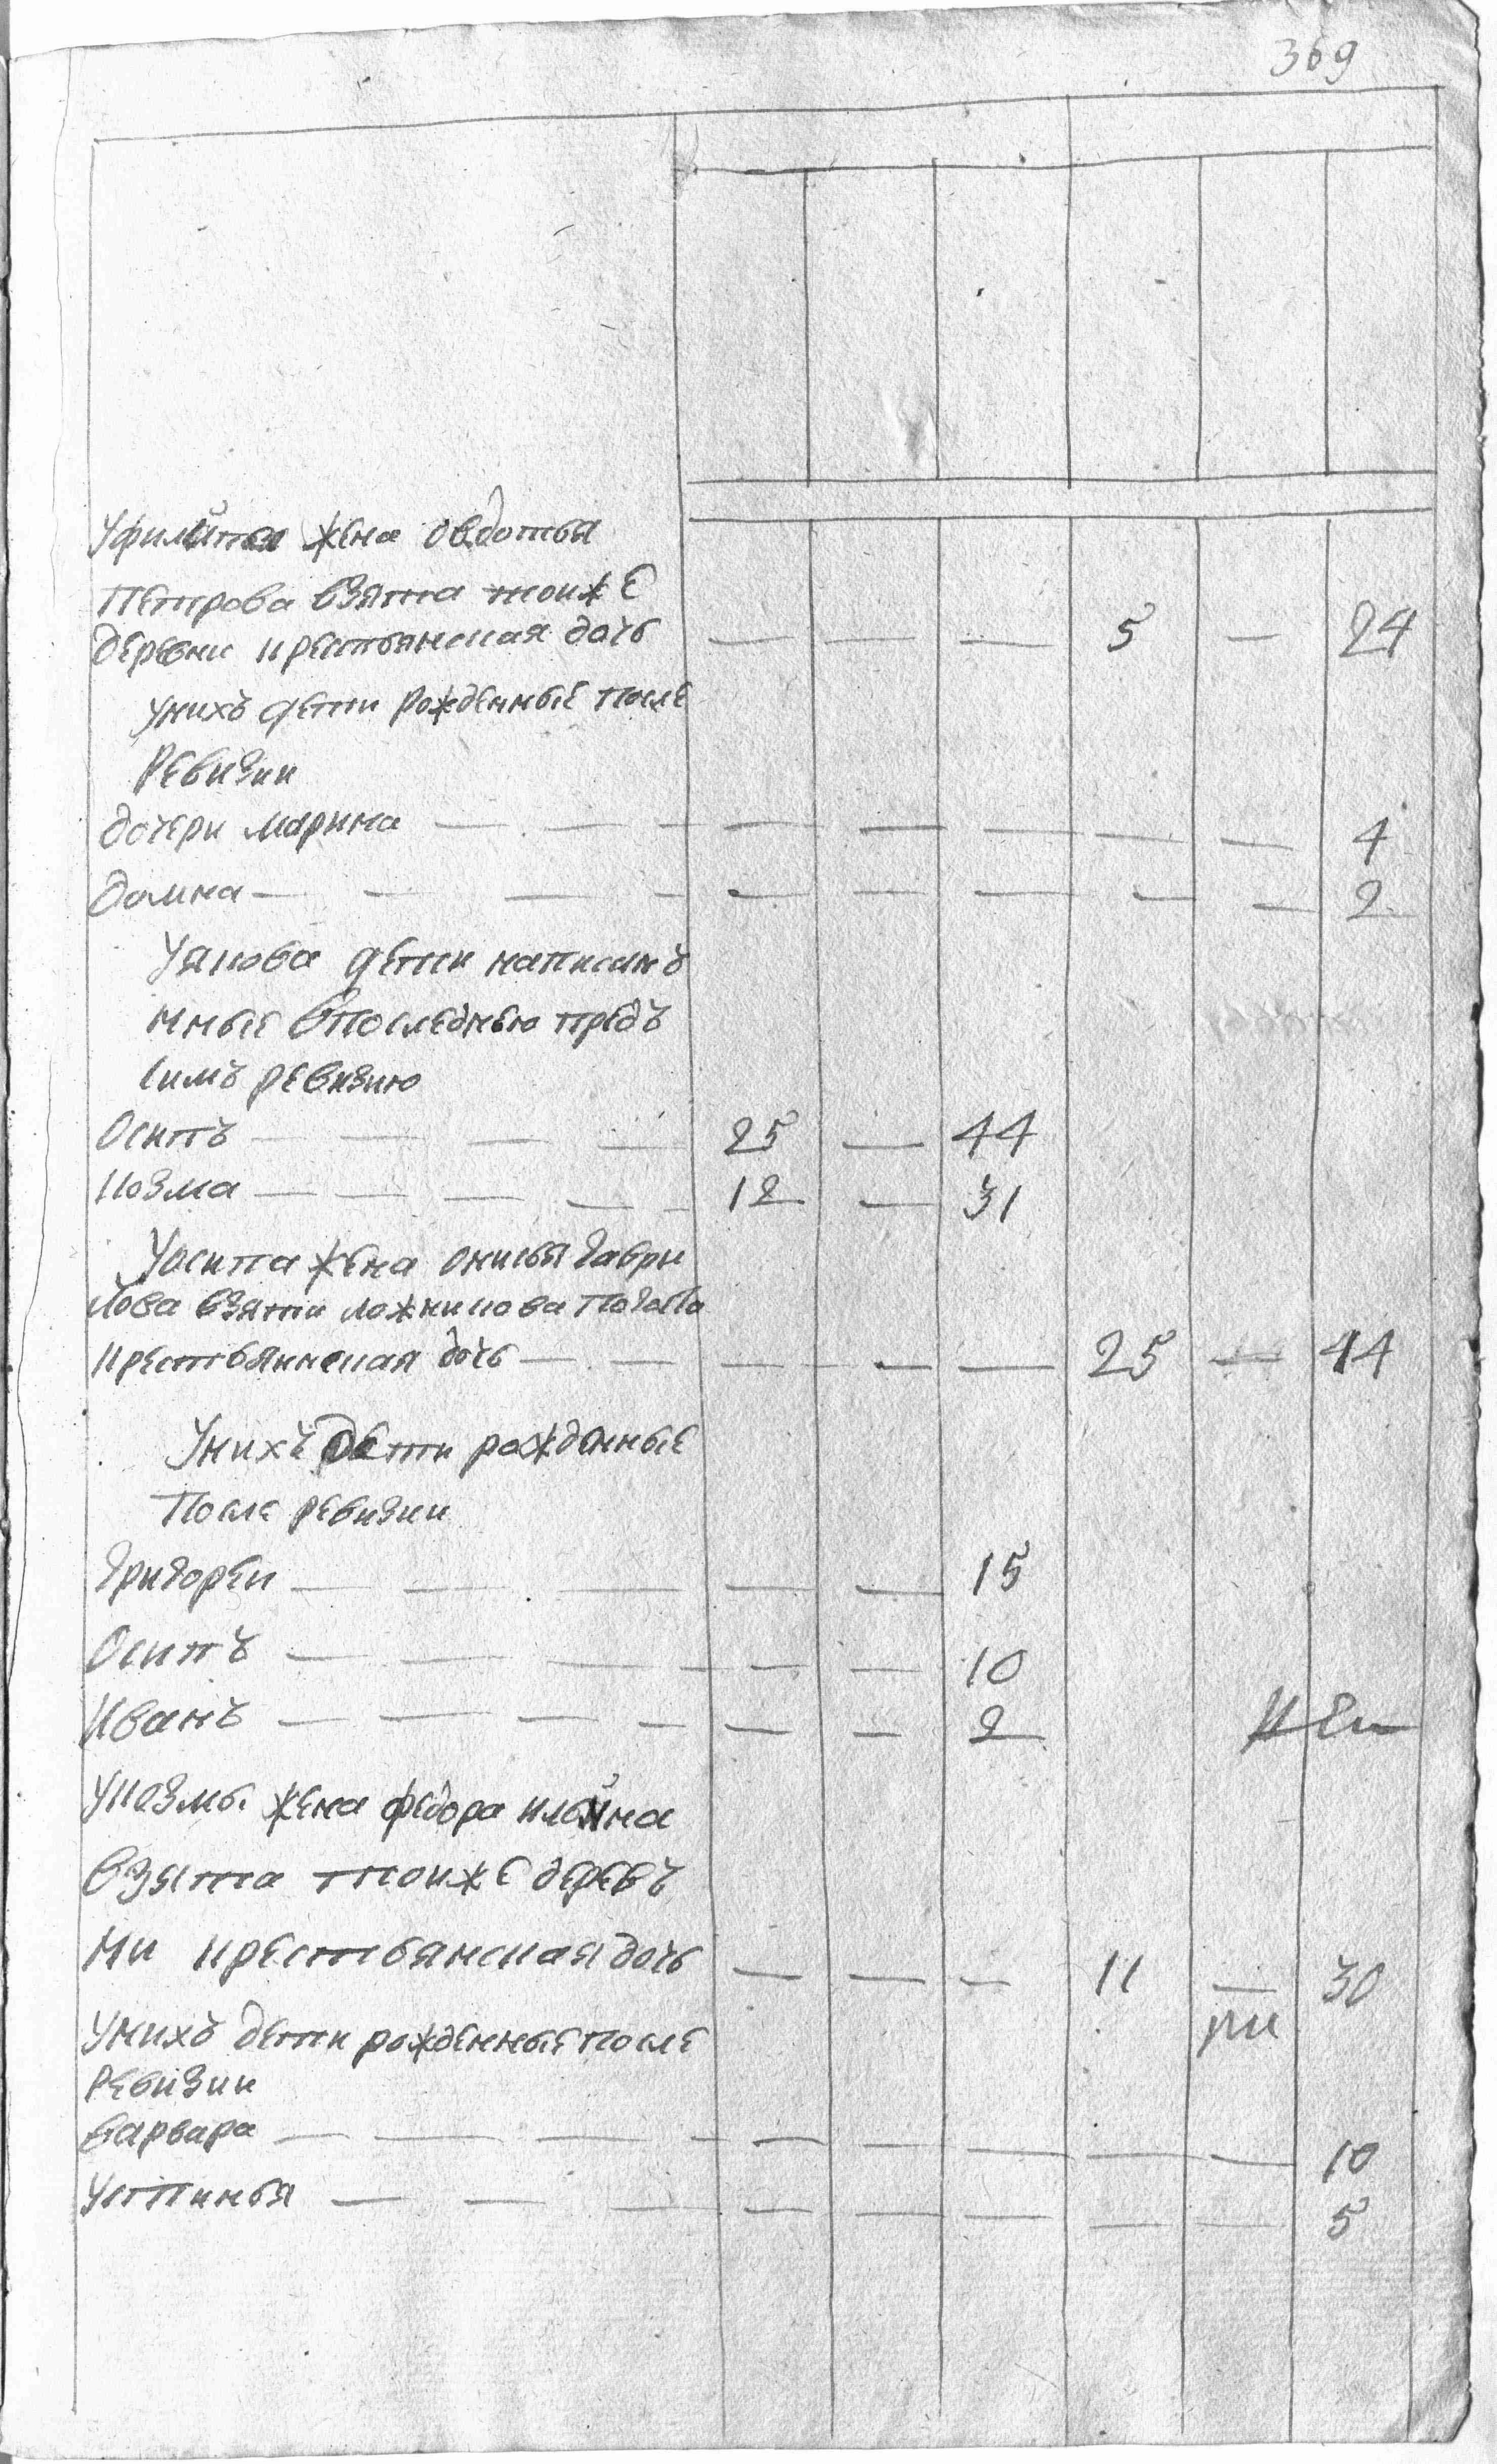 369
Уфилипа жена овдотья
Петрова взята тоиже
деревни крестьянская дочь — — — 5 — 24
унихъ дети рожденные после
Ревизии
дочери марина — — — — — — — — 4
домна — — — — — — — — — 2
Уякова дети написанъ
нные впоследнею предъ
симъ ревизию
Осипъ — — — — 25 — 44
Козма — — — — 12 — 31
Уосипа жена онисья гаври
лова взята ложникова погоста
крестьянская дочь — — — — — 25 — 44
Унихъ дети рожденные
После ревизии
Григореи — — — — — 15
Осипъ — — — — — — 10
Иванъ — — — — — — 2
Укозмы жена федора ильина
взята тоиже деревъ
ни крестьянская дочь — — — 11 — 30
Унихъ дети рожденные после
ревизии
варвара — — — — — — — — — 10
Устинья — — — — — — — — 5